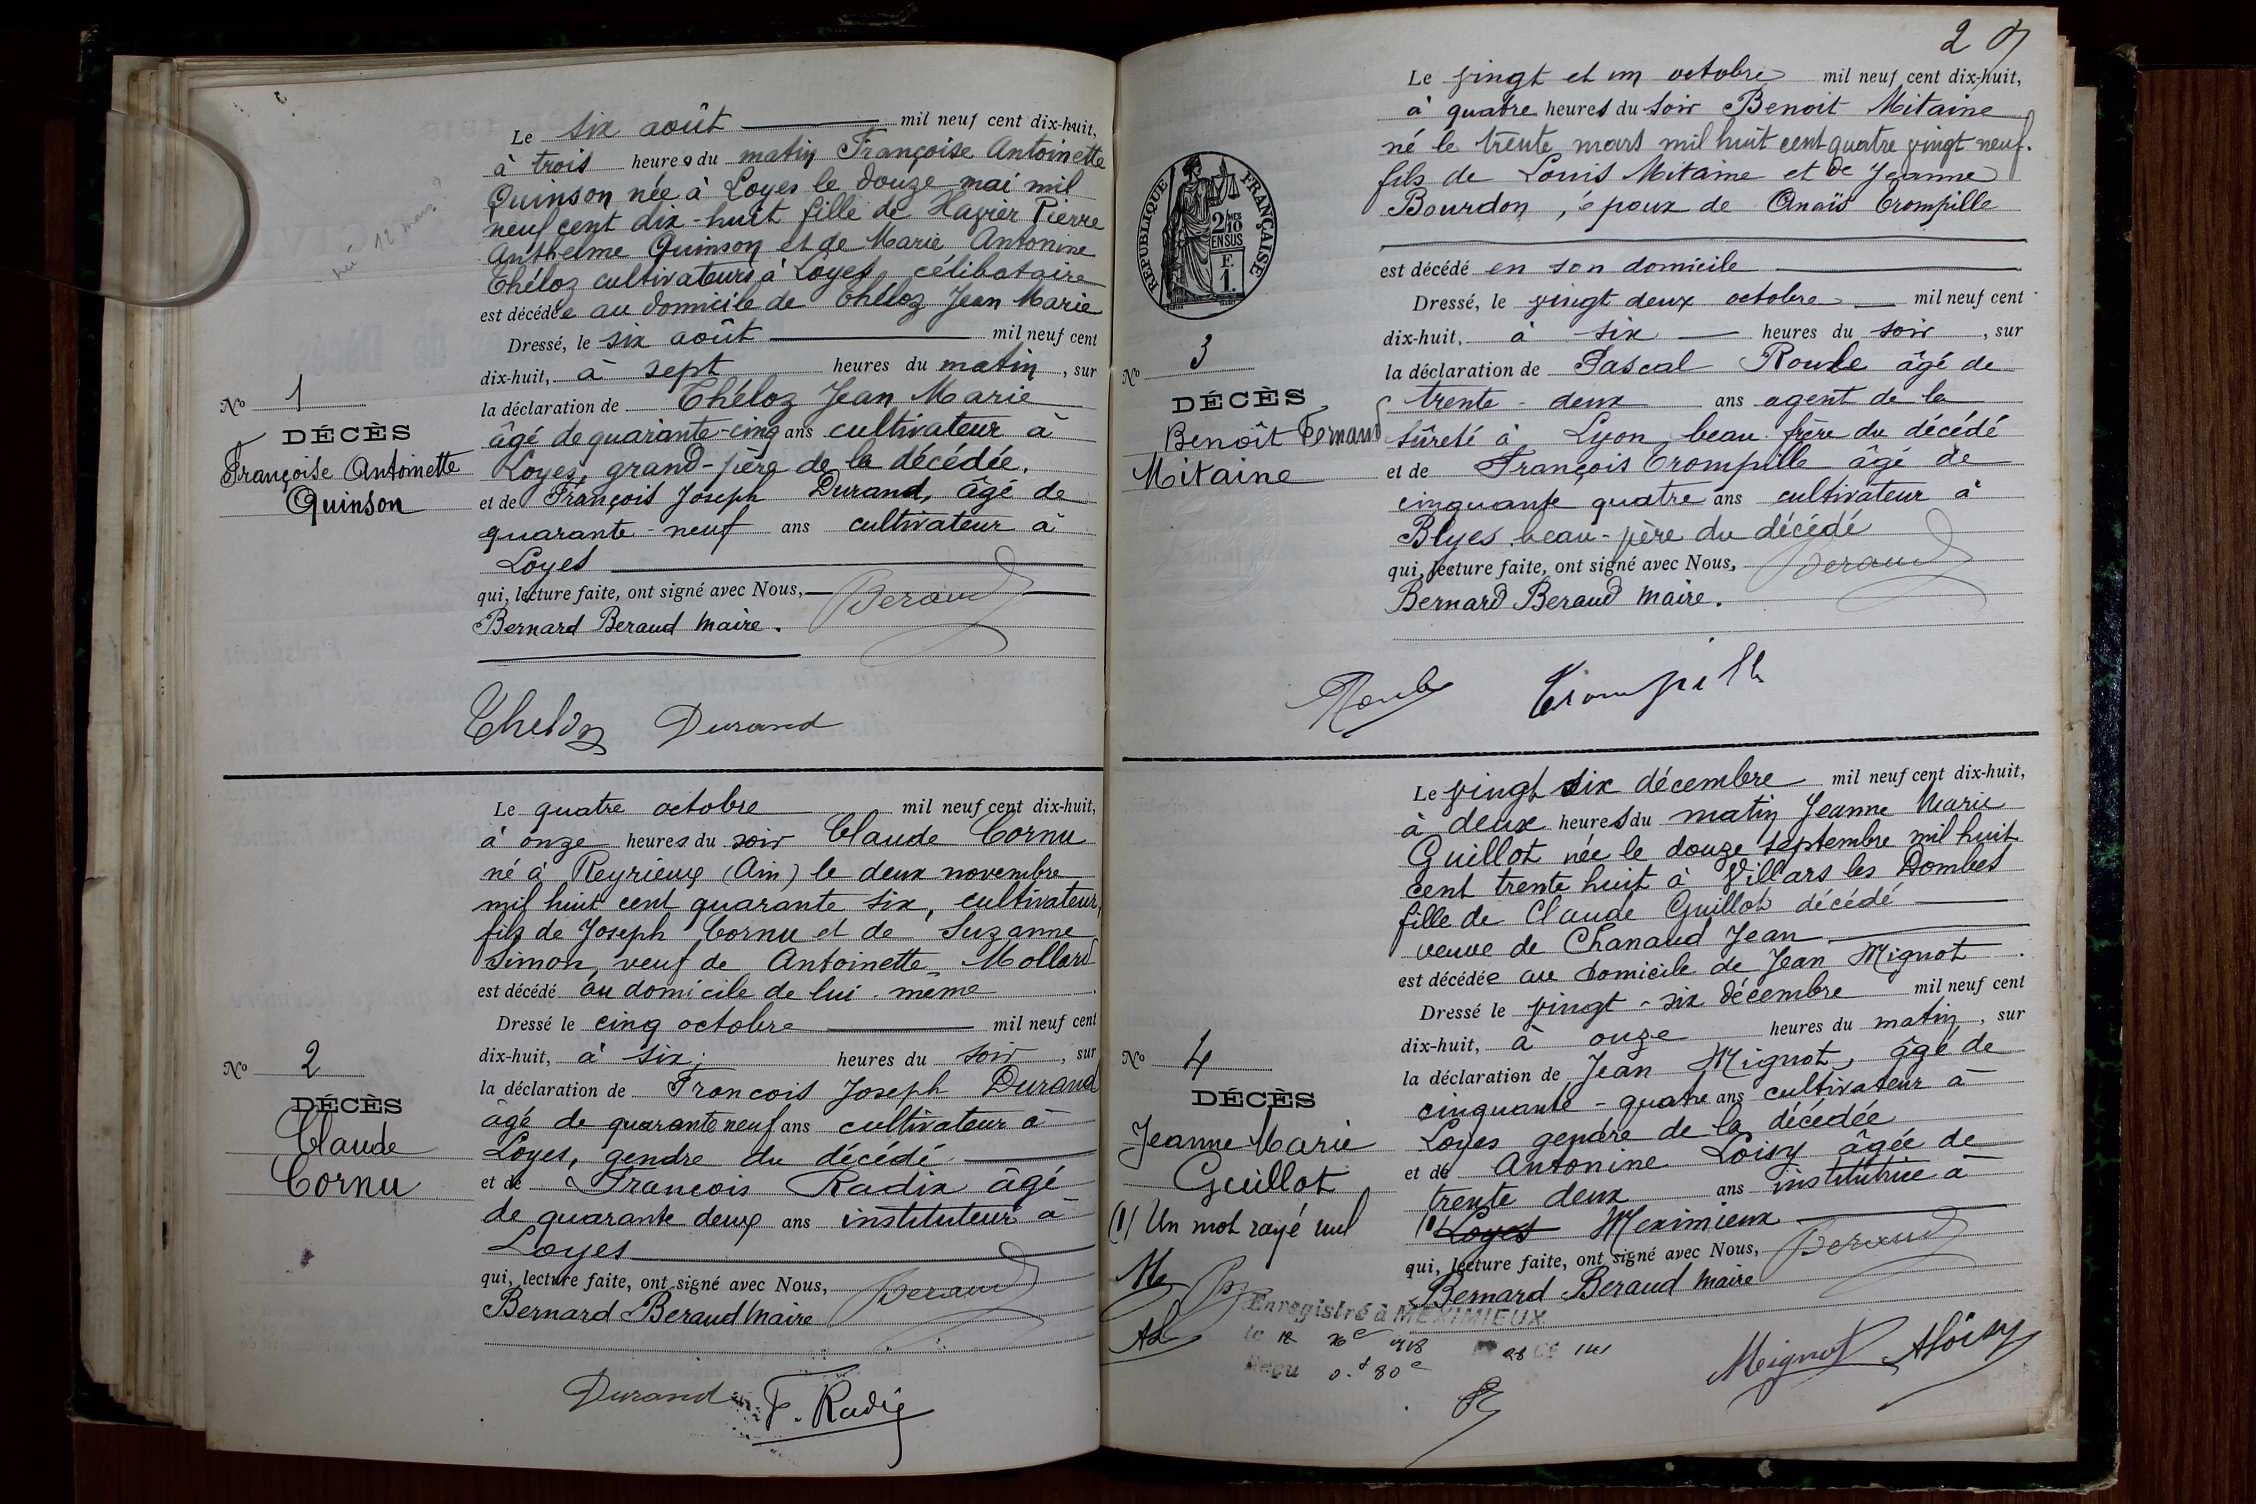 Le six août mil neuf cent dix-huit,
à trois heures du matin Françoise Antoinette
Quinson née à Loyes le douze mai mil
neuf cent dix-huit fille de Havier Pierre
Anthelme Quinson et de Marie Antonine
Théloz cultivateurs à Loyes, célibataire
est décédée au domicile de Théloz Jean Marie
Dressé, le six août mil neuf cent
dix-huit, à sept heures du matin, sur
la déclaration de Théloz Jean Marie
âgé de quarante-cinq ans cultivateur à
Loyes, grand-père de la décédée.
et de François Joseph Durand, âgé de
quarante-neuf ans cultivateur à
Loyes
qui, lecture faite, ont signé avec Nous,
Bernard Beraud Maire.
Beraud
Theloz Durand
né 12 mars ?
No 1
DÉCÈS
Françoise Antoinette
Quinson
Le quatre octobre mil neuf cent dix-huit,
à onze heures du soir Claude Cornu
né à Reyrieux (Ain) le deux novembre
mil huit cent quarante six, cultivateur,
fils de Joseph Cornu et de Suzanne
Simon, veuf de Antoinette Mollard
est décédé au domicile de lui-meme
Dressé le cinq octobre mil neuf cent
dix-huit, à six heures du soir, sur
la déclaration de Francois Joseph Durand
âgé de quarante neuf ans cultivateur à
Loyes, gendre du décédé
et de Francois Radix âgé
de quarante deux ans instituteur à
Loyes
qui, lecture faite, ont signé avec Nous,
Bernard Beraud Maire
Beraud
Durand F. Radix
No 2
DÉCÈS
Claude
Cornu
2
Le vingt et un octobre mil neuf cent dix-huit,
à quatre heures du soir Benoit Mitaine
né le trente mars mil huit cent quatre vingt neuf.
fils de Louis Mitaine et de Jeanne
Bourdon, époux de Anaïs Trompille
est décédé en son domicile
Dressé, le vingt deux octobre mil neuf cent
dix-huit, à six heures du soir, sur
la déclaration de Pascal Roule âgé de
trente-deux ans agent de la
sûreté à Lyon, beau-frère du décédé
et de François Trompille âgé de
cinquante quatre ans cultivateur à
Blyes beau-père du décédé
qui, lecture faite, ont signé avec Nous,
Bernard Beraud Maire.
Beraud
Roule Trompille
RÉPUBLIQUE FRANÇAISE
2/10 MES
EN SUS
F.
1.
No 3
DÉCÈS
Benoît Fernand
Mitaine
Le vingt six décembre mil neuf cent dix-huit,
à deux heures du matin Jeanne Marie
Guillot née le douze septembre mil huit
cent trente huit à Villars les Dombes
fille de Claude Guillot décédé
veuve de Chanaud Jean
est décédée au domicile de Jean Mignot
Dressé le vingt-six décembre mil neuf cent
dix-huit, à onze heures du matin, sur
la déclaration de Jean Mignot, âgé de
cinquante-quatre ans cultivateur à
Loyes gendre de la décédée
et de Antonine Loisy âgée de
trente deux ans institutrice à
(1) Loyes Meximieux
qui, lecture faite, ont signé avec Nous,
Bernard Beraud Maire
Beraud
Mignot ALoisy
No 4
DÉCÈS
Jeanne Marie
Guillot
(1) Un mot rayé nul
Enregistré à MEXIMIEUX